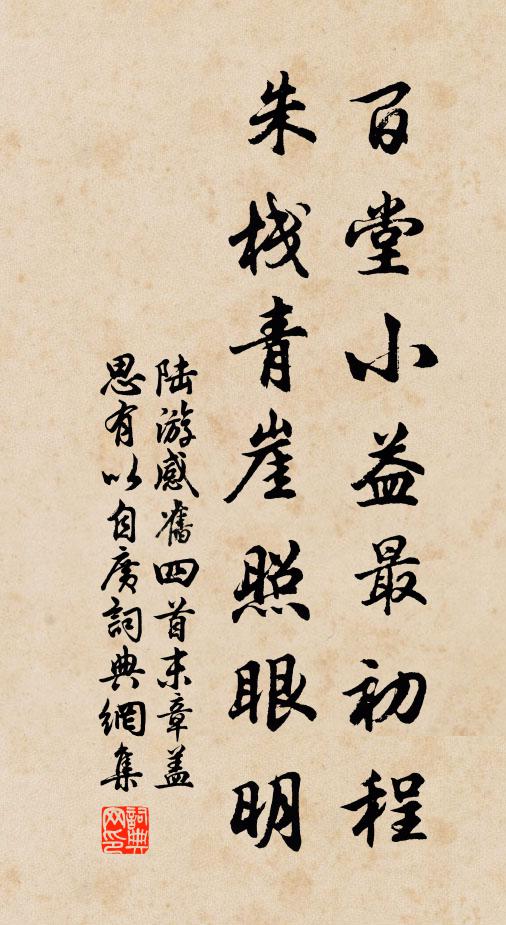 百堂小益最初程
朱栈青崖照眼明
陆游感舊四首末章盖
思有以自廣詞典網集
詞典
网印